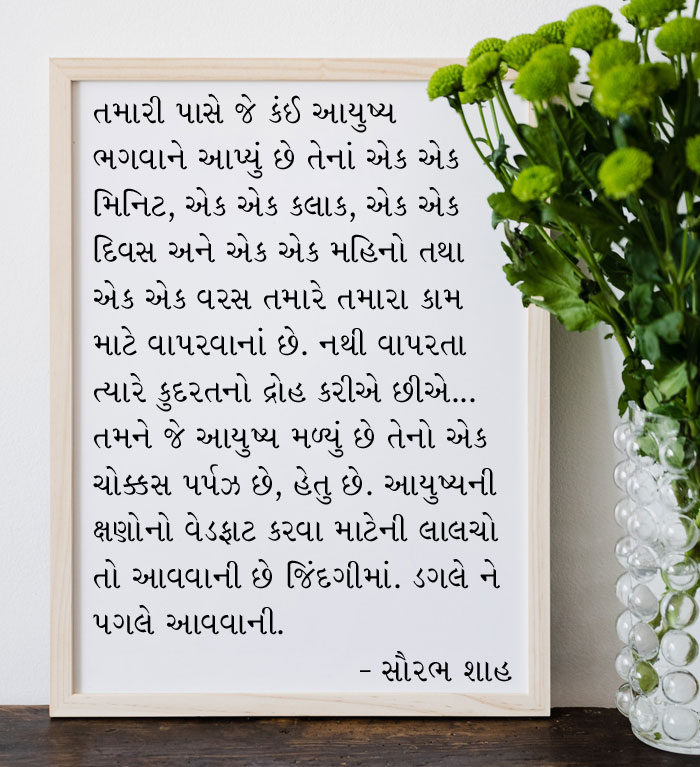 તમારી પાસે જે કંઈ આયુષ્ય
ભગવાને આપ્યું છે તેનાં એક એક
મિનિટ, એક એક કલાક, એક એક
દિવસ અને એક એક મહિનો તથા
એક એક વરસ તમારે તમારા કામ
માટે વાપરવાનાં છે. નથી વાપરતા
ત્યારે કુદરતનો દ્રોહ કરીએ છીએ...
તમને જે આયુષ્ય મળ્યું છે તેનો એક
ચોક્કસ પર્પઝ છે, હેતુ છે. આયુષ્યની
ક્ષણોનો વેડફાટ કરવા માટેની લાલચો
તો આવવાની છે જિંદગીમાં. ડગલે ને
પગલે આવવાની.
- સૌરભ શાહ